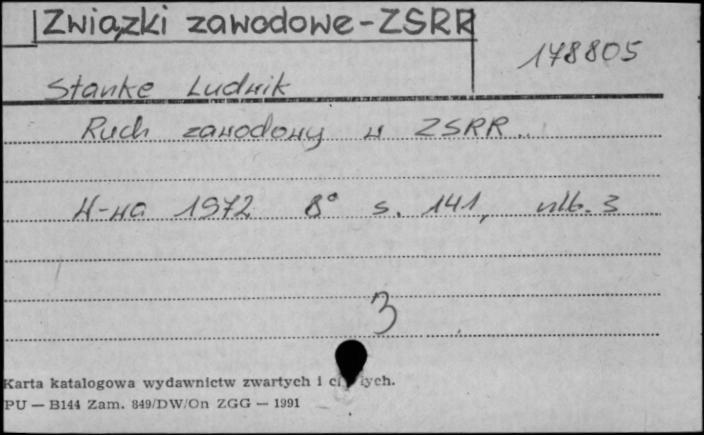 Związki zawodowe-ZSRR
178805
Stanke Ludwik
Ruch zawodowy w ZSRR..
W-wa 1972 8° s. 141, nlb. 3
3
Karta katalogowa wydawnictw zwartych i
PU — B144 Zam. 849/DW/On ZGG — 1991